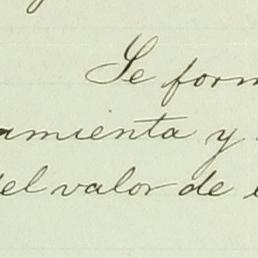 Se form
amienta y
del valor de